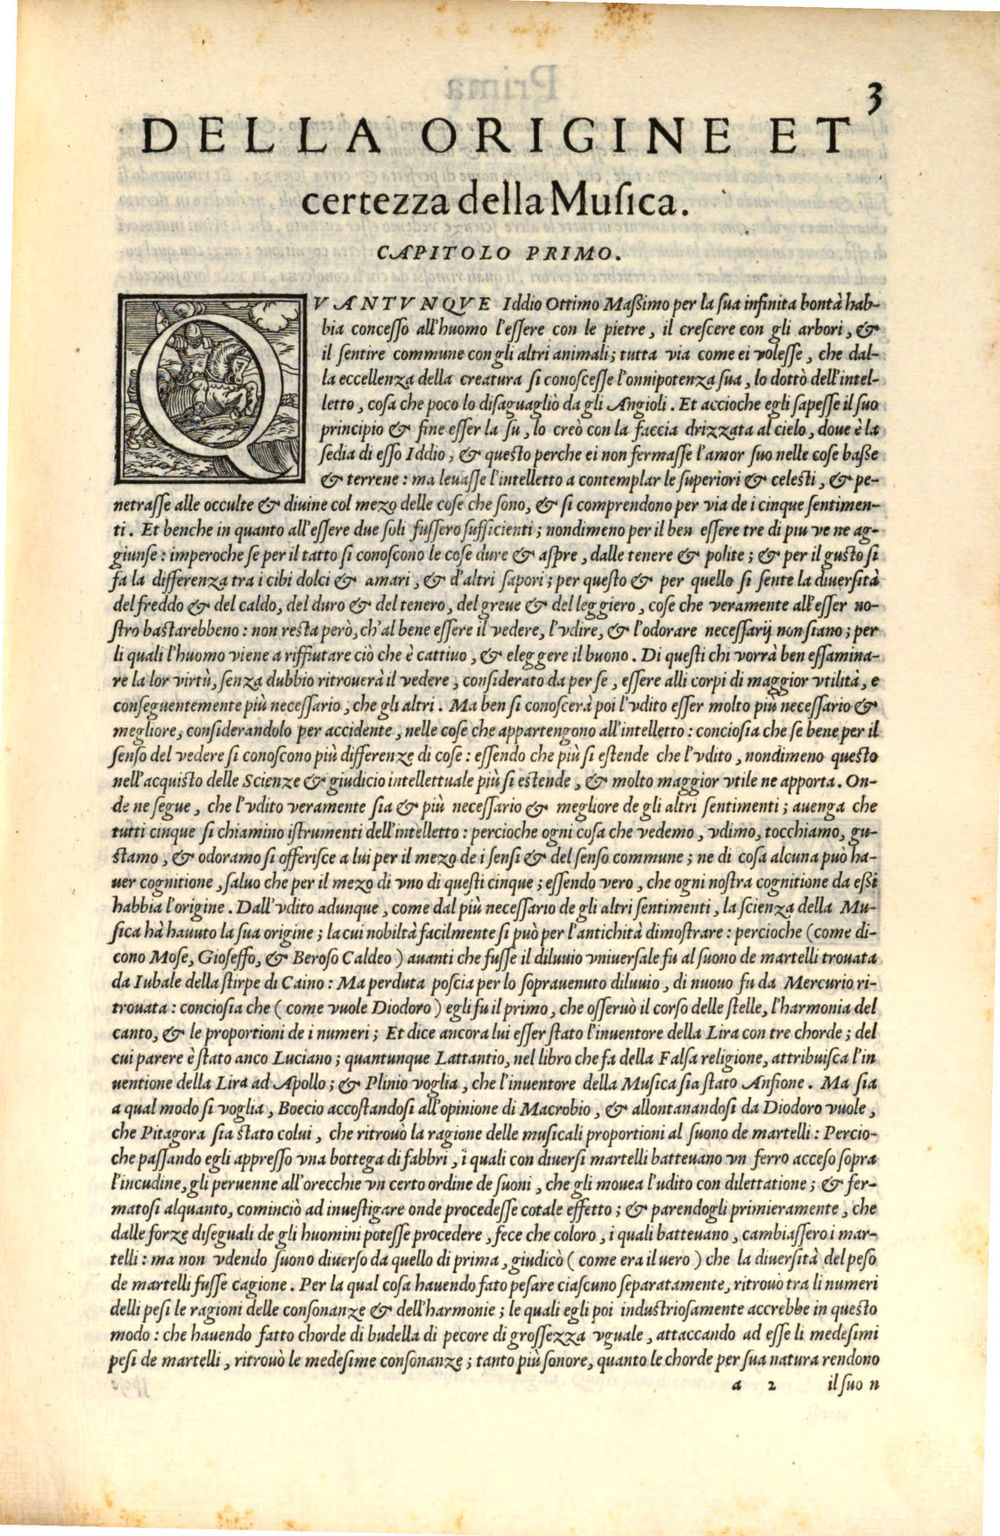 3
DELLA ORIGINE ET
certezza della Muſica.
CAPITOLO PRIMO.
QVANTVNQVE Iddio Ottimo Maßimo per la ſua infinita bontà hab-
bia conceſſo all'huomo l'eſſere con le pietre, il creſcere con gli arbori, &
il ſentire commune con gli altri animali; tutta via come ei voleſſe, che dal-
la eccellenza della creatura ſi conoſceſſe l'onnipotenza ſua, lo dottò dell'intel-
letto, coſa che poco lo diſaguagliò da gli Angioli. Et accioche egli ſapeſſe il ſuo
principio & fine eſſer la ſu, lo creò con la faccia drizzata al cielo, doue è la
ſedia di eſſo Iddio, & queſto perche ei non fermaſſe l'amor ſuo nelle coſe baſſe
& terrene: ma leuaſſe l'intelletto a contemplar le ſuperiori & celeſti, & pe-
netraſſe alle occulte & diuine col mezo delle coſe che ſono, & ſi comprendono per via de i cinque ſentimen-
ti. Et benche in quanto all'eſſere due ſoli fuſſero ſufficienti; nondimeno per il ben eſſere tre di piu ve ne ag-
giunſe: imperoche ſe per il tatto ſi conoſcono le coſe dure & aſpre, dalle tenere & polite; & per il guſto ſi
fa la differenza tra i cibi dolci & amari, & d'altri ſapori; per queſto & per quello ſi ſente la diuerſità
del freddo & del caldo, del duro & del tenero, del greue & del leggiero, coſe che veramente all'eſſer no-
ſtro baſtarebbeno: non reſta però, ch'al bene eſſere il vedere, l'vdire, & l'odorare neceſſarij non ſiano; per
li quali l'huomo viene a riffiutare ciò che è cattiuo, & eleggere il buono. Di queſti chi vorrà ben eſſamina-
re la lor virtù, ſenza dubbio ritrouerà il vedere, conſiderato da per ſe, eſſere alli corpi di maggior vtilità, e
conſeguentemente più neceſſario, che gli altri. Ma ben ſi conoſcerà poi l'vdito eſſer molto più neceſſario &
megliore, conſiderandolo per accidente, nelle coſe che appartengono all'intelletto: concioſia che ſe bene per il
ſenſo del vedere ſi conoſcono più differenze di coſe: eſſendo che più ſi eſtende che l'vdito, nondimeno queſto
nell'acquiſto delle Scienze & giudicio intellettuale più ſi eſtende, & molto maggior vtile ne apporta. On-
de ne ſegue, che l'vdito veramente ſia & più neceſſario & megliore de gli altri ſentimenti; auenga che
tutti cinque ſi chiamino iſtrumenti dell'intelletto: percioche ogni coſa che vedemo, vdimo, tocchiamo, gu-
ſtamo, & odoramo ſi offeriſce a lui per il mezo de i ſenſi & del ſenſo commune; ne di coſa alcuna può ha-
uer cognitione, ſaluo che per il mezo di vno di queſti cinque; eſſendo vero, che ogni noſtra cognitione da eßi
habbia l'origine. Dall'vdito adunque, come dal più neceſſario de gli altri ſentimenti, la ſcienza della Mu-
ſica hà hauuto la ſua origine; la cui nobiltà facilmente ſi può per l'antichità dimoſtrare: percioche (come di-
cono Moſe, Gioſeffo, & Beroſo Caldeo) auanti che fuſſe il diluuio vniuerſale fu al ſuono de martelli trouata
da Iubale della ſtirpe di Caino: Ma perduta poſcia per lo ſoprauenuto diluuio, di nuouo fu da Mercurio ri-
trouata: concioſia che (come vuole Diodoro) egli fu il primo, che oſſeruò il corſo delle ſtelle, l'harmonia del
canto, & le proportioni de i numeri; Et dice ancora lui eſſer ſtato l'inuentore della Lira con tre chorde; del
cui parere è ſtato anco Luciano; quantunque Lattantio, nel libro che fa della Falſa religione, attribuiſca l'in
uentione della Lira ad Apollo; & Plinio voglia, che l'inuentore della Muſica ſia ſtato Anfione. Ma ſia
a qual modo ſi voglia, Boecio accoſtandoſi all'opinione di Macrobio, & allontanandoſi da Diodoro vuole,
che Pitagora ſia ſtato colui, che ritrouò la ragione delle muſicali proportioni al ſuono de martelli: Percio-
che paſſando egli appreſſo vna bottega di fabbri, i quali con diuerſi martelli batteuano vn ferro acceſo ſopra
l'incudine, gli peruenne all'orecchie vn certo ordine de ſuoni, che gli mouea l'udito con dilettatione; & fer-
matoſi alquanto, cominciò ad inueſtigare onde procedeſſe cotale effetto; & parendogli primieramente, che
dalle forze diſeguali de gli huomini poteſſe procedere, fece che coloro, i quali batteuano, cambiaſſero i mar-
telli: ma non vdendo ſuono diuerſo da quello di prima, giudicò (come era il vero) che la diuerſità del peſo
de martelli fuſſe cagione. Per la qual coſa hauendo fato peſare ciaſcuno ſeparatamente, ritrouò tra li numeri
delli peſi le ragioni delle conſonanze & dell'harmonie; le quali egli poi induſtrioſamente accrebbe in queſto
modo: che hauendo fatto chorde di budella di pecore di groſſezza vguale, attaccando ad eſſe li medeſimi
peſi de martelli, ritrouò le medeſime conſonanze; tanto più ſonore, quanto le chorde per ſua natura rendono
a 2 il ſuo n